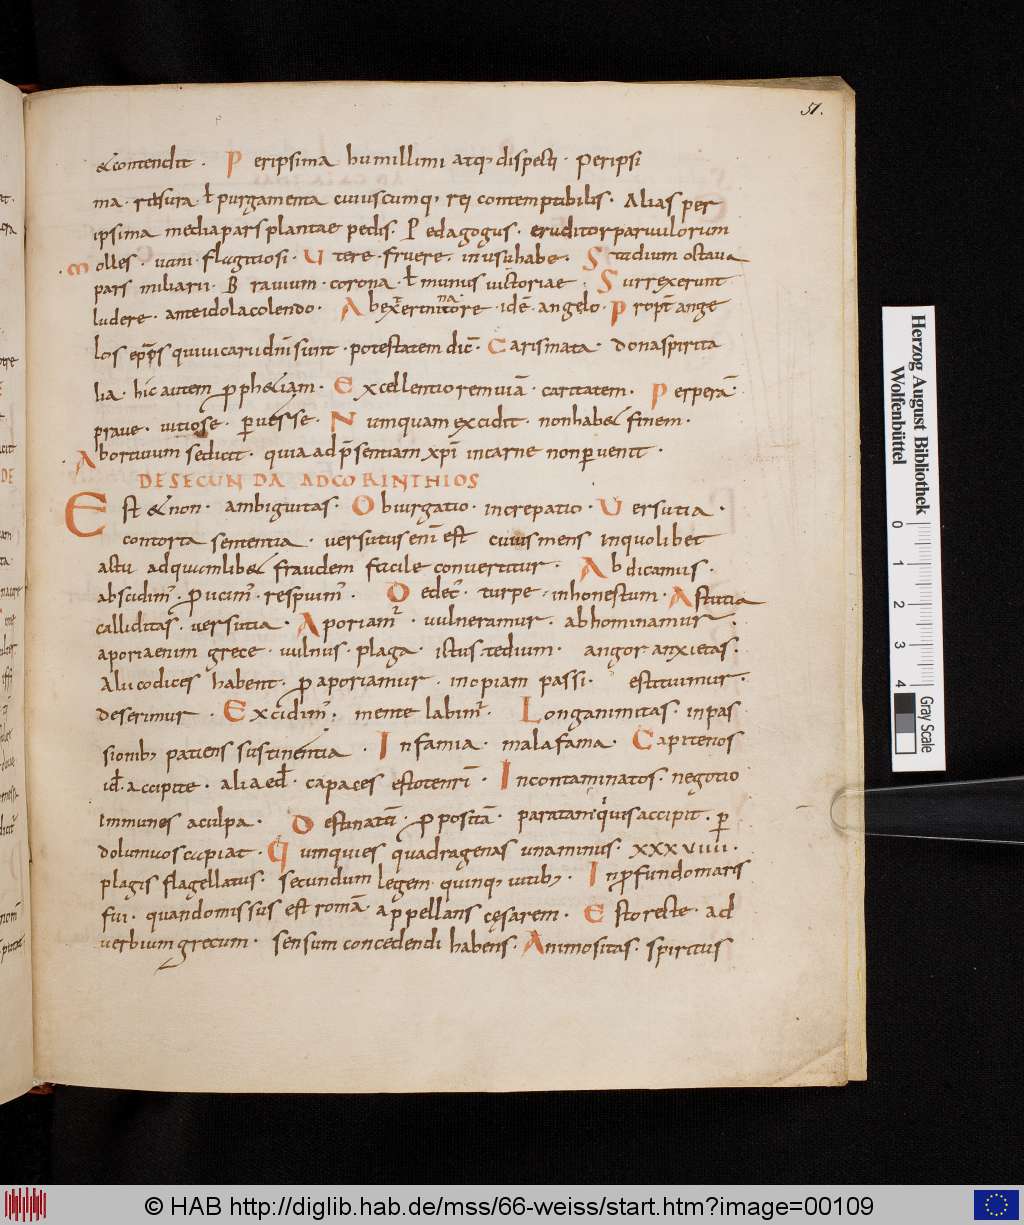 51.
&contendit . Peripsima humillimi atq; dispecti · Peripsi
ma · rasura ł purgamenta cuiuscumq; rei contemptibilis · Alias per
ipsima media pars plantae pedis · Pedagogus · eruditor parvulorum
Molles · vani · flagitiosi · Utere · fruere · in usu habe · Studium octava
pars miliarii · Bravium · corona · ł munus victoriae · Surrexerunt
ludere · ante idola colendo · Ab exterminatore · idē angelo · Propt̄ ange
los ep̄os qui vicarii dn̄i sunt · potestatem dic̄ · Carismata · dona spirita
lia · hic autem pphetiam · Excellentiorem viā · caritatem · Perperā
prave · vitiose · pverse · Numquam excidit · non habet finem ·
Abortivum se dicit · quia ad p̄sentiam xp̄i in carne non pvenit ·
DE SECUNDA AD CORINTHIOS
Est & non · ambiguitas · Obiurgatio · increpatio · Versutia ·
contorta sententia · versutus eni est cuius mens in quolibet
actu ad quamlib& fraudem facile convertitur · Abdicamus ·
abscidim' · proicim' · respuim' · Dedec' · turpe · inhonestum · Astutia
calliditas · versutia · Aporiam² · vulneramur · abhominamur ·
aporia enim grece · vulnus · plaga · ictus · tedium · angor anxietas ·
Alii codices habent · p aporiamur · inopiam passi · estituimur ·
deserimur · Excidim' · mente labim² · Longanimitas · in pas
sionib; patiens sustinentia · Infamia · mala fama · Capite nos
id accipite · alia ed · capaces estote nri · Incontaminatos · negotio
immunes a culpa · Destinatā · ppositā · paratam quis accipit · p
dolum vos cupiat · Quinquies quadragenas una minus · xxxviiii ·
plagis flagellatus · secundum legem · quinq; vicib; · In pfundo maris
fui · quando missus est romā · appellans cęsarem · Esto recte · ad
verbium grecum · sensum concedendi habens · Animositas · spiritus
Herzog August Bibliothek
Wolfenbüttel
0 1 2 3 4
Gray Scale
© HAB http://diglib.hab.de/mss/66-weiss/start.htm?image=00109